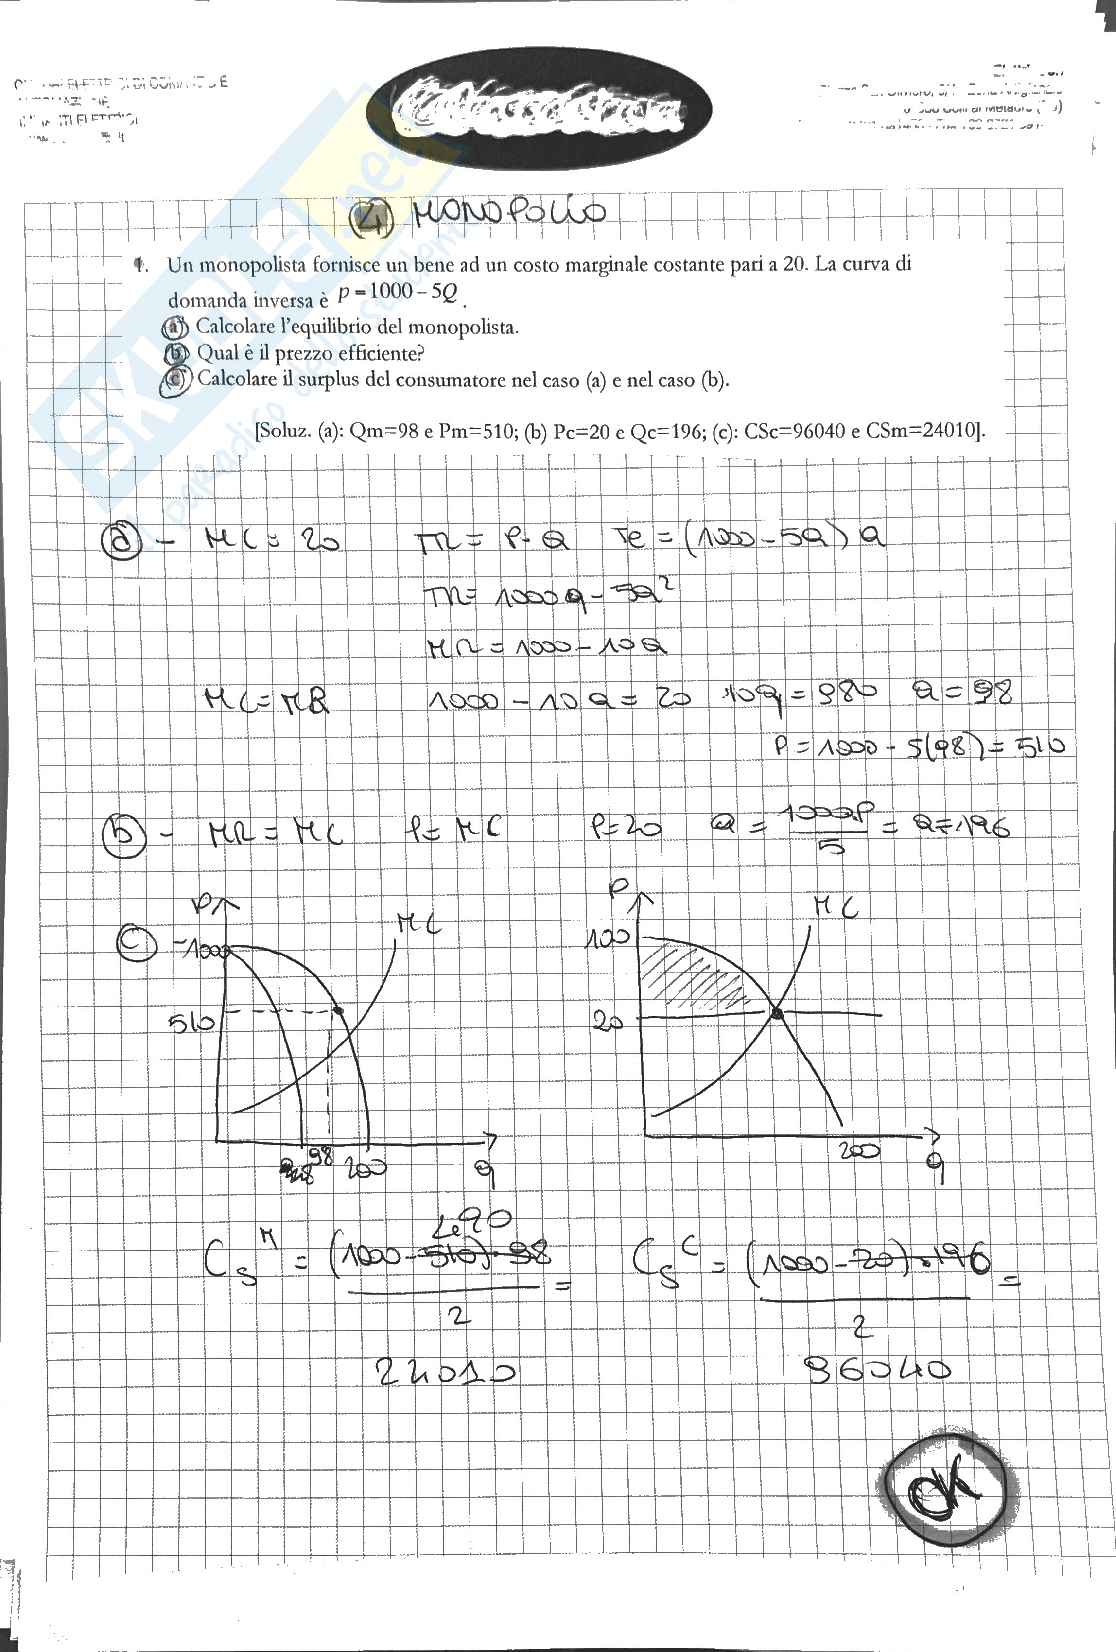 4 MONOPOLIO
1. Un monopolista fornisce un bene ad un costo marginale costante pari a 20. La curva di
domanda inversa è p = 1000 − 5Q .
(a) Calcolare l'equilibrio del monopolista.
(b) Qual è il prezzo efficiente?
(c) Calcolare il surplus del consumatore nel caso (a) e nel caso (b).
[Soluz. (a): Qm=98 e Pm=510; (b) Pc=20 e Qc=196; (c): CSc=96040 e CSm=24010].
a - MC = 20 TR = P · Q TR = (1000 - 5Q) Q
TR = 1000Q - 5Q²
MR = 1000 - 10Q
MC = MR 1000 - 10Q = 20 10Q = 980 Q = 98
P = 1000 - 5(98) = 510
b - MR = MC P = MC P = 20 Q = 1000-P / 5 = Q = 196
c P 1000 510 MC 98 200 q
P 100 20 MC 200 q
490
CS^M = (1000 - 510) · 98 / 2 =
CS^C = (1000 - 20) · 196 / 2 =
24010
96040
OK
SKUOLA.net
il paradiso dello studente